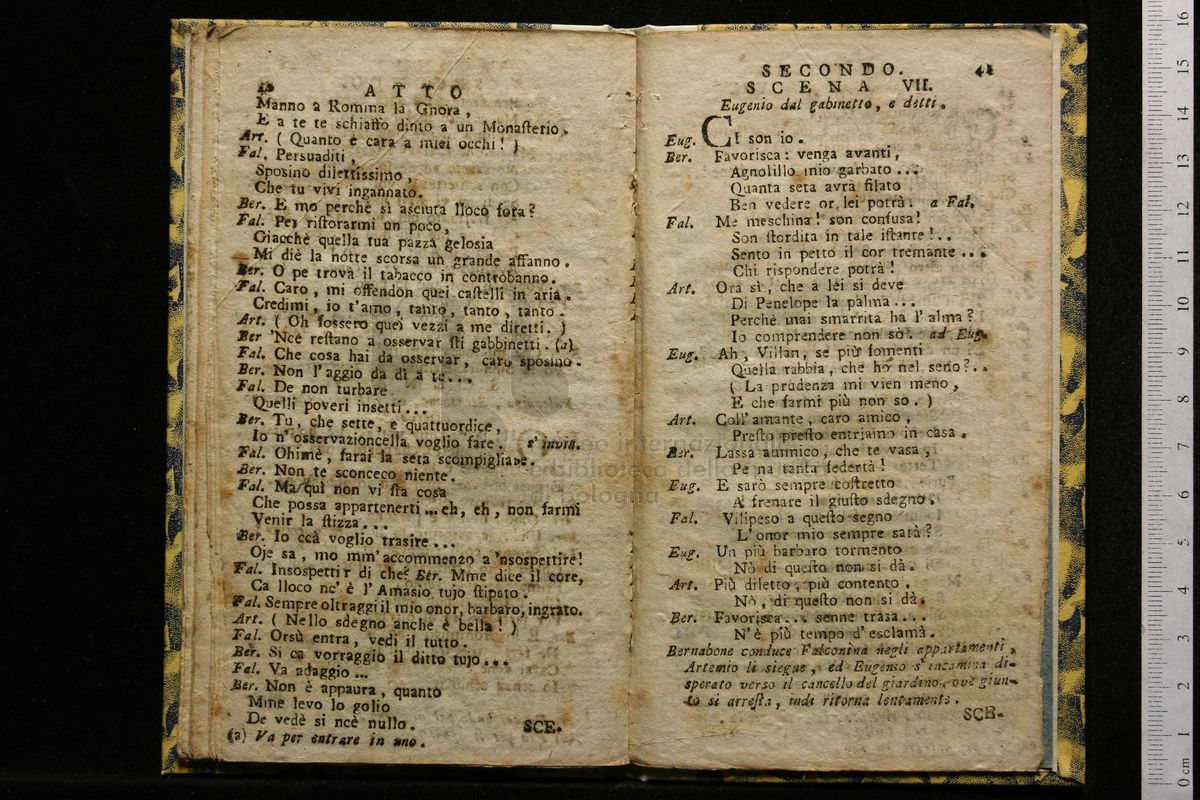 40 ATTO
Manno a Romma la Gnora,
E a te te schiaffo dinto a un Monaſterio.
Art. ( Quanto è cara a miei occhi! )
Fal. Persuaditi,
Sposino dilettissimo,
Che tu vivi ingannato.
Ber. E mo perchè sì asciuta lloco fora?
Fal. Per riſtorarmi un poco,
Giacchè quella tua pazza gelosia
Mi diè la notte scorsa un grande affanno.
Ber. O pe trovà il tabacco in controbanno.
Fal. Caro, mi offendon quei caſtelli in aria.
Credimi, io t'amo, tanto, tanto, tanto.
Art. ( Oh fossero quei vezzi a me diretti. )
Ber 'Ncè reſtano a osservar ſti gabbinetti. (a)
Fal. Che cosa hai da osservar, caro sposino.
Ber. Non l'aggio da dì a te...
Fal. De non turbare
Quelli poveri insetti...
Ber. Tu, che sette, e quattuordice,
Io n'osservazioncella voglio fare. s'invia.
Fal. Ohimè, farai la seta scompigliare.
Ber. Non te sconceco niente.
Fal. Ma quì non vi ſta cosa
Che possa appartenerti... eh, eh, non farmi
Venir la ſtizza...
Ber. Io ccà voglio trasire...
Oje sa, mo mm'accommenzo a 'nsospettire!
Fal. Insospettir di che? Ber. Mme dice il core,
Ca lloco nc'è l'Amasio tujo ſtipato.
Fal. Sempre oltraggi il mio onor, barbaro, ingrato.
Art. ( Nello sdegno anche è bella! )
Fal. Orsù entra, vedi il tutto.
Ber. Si ca vorraggio il ditto tujo...
Fal. Va adaggio...
Ber. Non è appaura, quanto
Mme levo lo golio
De vedè si ncè nullo. SCE-
(a) Va per entrare in uno.
SECONDO. 41
SCENA VII.
Eugenio dal gabinetto, e detti.
Eug. CI son io.
Ber. Favorisca: venga avanti,
Agnolillo mio garbato...
Quanta seta avrà filato
Ben vedere or lei potrà. a Fal.
Fal. Me meschina! son confusa!
Son ſtordita in tale iſtante!..
Sento in petto il cor tremante...
Chi rispondere potrà!
Art. Ora sì, che a lei si deve
Di Penelope la palma...
Perchè mai smarrita ha l'alma?
Io comprendere non sò. ad Eug.
Eug. Ah, Villan, se più fomenti
Quella rabbia, che ho nel seno?..
( La prudenza mi vien meno,
E che farmi più non so. )
Art. Coll'amante, caro amico,
Preſto preſto entriamo in casa.
Ber. Lassa ammico, che te vasa,
Pe na tanta federtà!
Eug. E sarò sempre coſtretto
A frenare il giuſto sdegno.
Fal. Vilipeso a queſto segno
L'onor mio sempre sarà?
Eug. Un più barbaro tormento
Nò di queſto non si dà.
Art. Più diletto, più contento,
Nò, di queſto non si dà.
Ber. Favorisca... senne trasa...
N'è più tempo d'esclamà.
Bernabone conduce Falconina negli appartamenti,
Artemio li siegue, ed Eugenio s'incamina di-
sperato verso il cancello del giardino, ove giun-
to si arreſta, indi ritorna lentamente.
SCE-